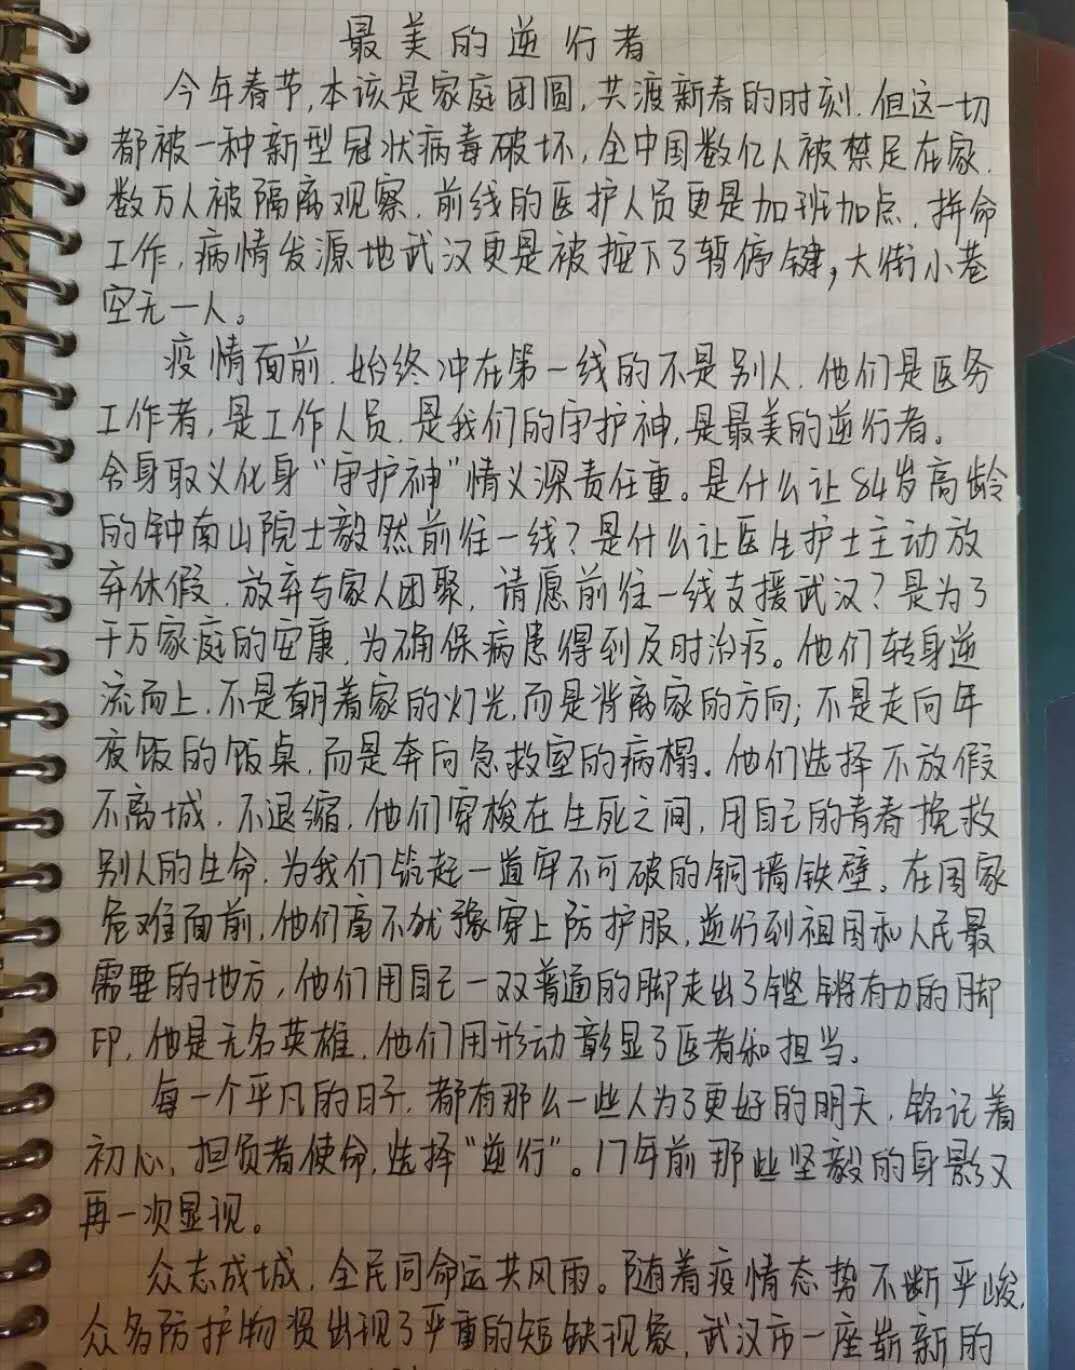 最美的逆行者
今年春节,本该是家庭团圆,共渡新春的时刻.但这一切
都被一种新型冠状病毒破坏,全中国数亿人被禁足在家.
数万人被隔离观察.前线的医护人员更是加班加点.拼命
工作.病情发源地武汉更是被按下了暂停键,大街小巷
空无一人。
疫情面前.始终冲在第一线的不是别人.他们是医务
工作者,是工作人员.是我们的守护神,是最美的逆行者。
舍身取义化身“守护神”情义深责任重。是什么让84岁高龄
的钟南山院士毅然前往一线?是什么让医生护士主动放
弃休假.放弃与家人团聚,请愿前往一线支援武汉?是为了
千万家庭的安康.为确保病患得到及时治疗。他们转身逆
流而上.不是朝着家的灯光,而是背离家的方向;不是走向年
夜饭的饭桌.而是奔向急救室的病榻。他们选择不放假
不离城.不退缩.他们穿梭在生死之间,用自己的青春挽救
别人的生命.为我们筑起一道牢不可破的铜墙铁壁。在国家
危难面前,他们毫不犹豫穿上防护服,逆行到祖国和人民最
需要的地方,他们用自己一双普通的脚走出了铿锵有力的脚
印,他是无名英雄.他们用形动彰显了医者和担当。
每一个平凡的日子.都有那么一些人为了更好的明天.铭记着
初心、担负着使命,选择“逆行”。17年前那些坚毅的身影又
再一次显现。
众志成城.全民同命运共风雨。随着疫情态势不断严峻,
众多防护物资出现了严重的短缺现象.武汉市一座崭新的